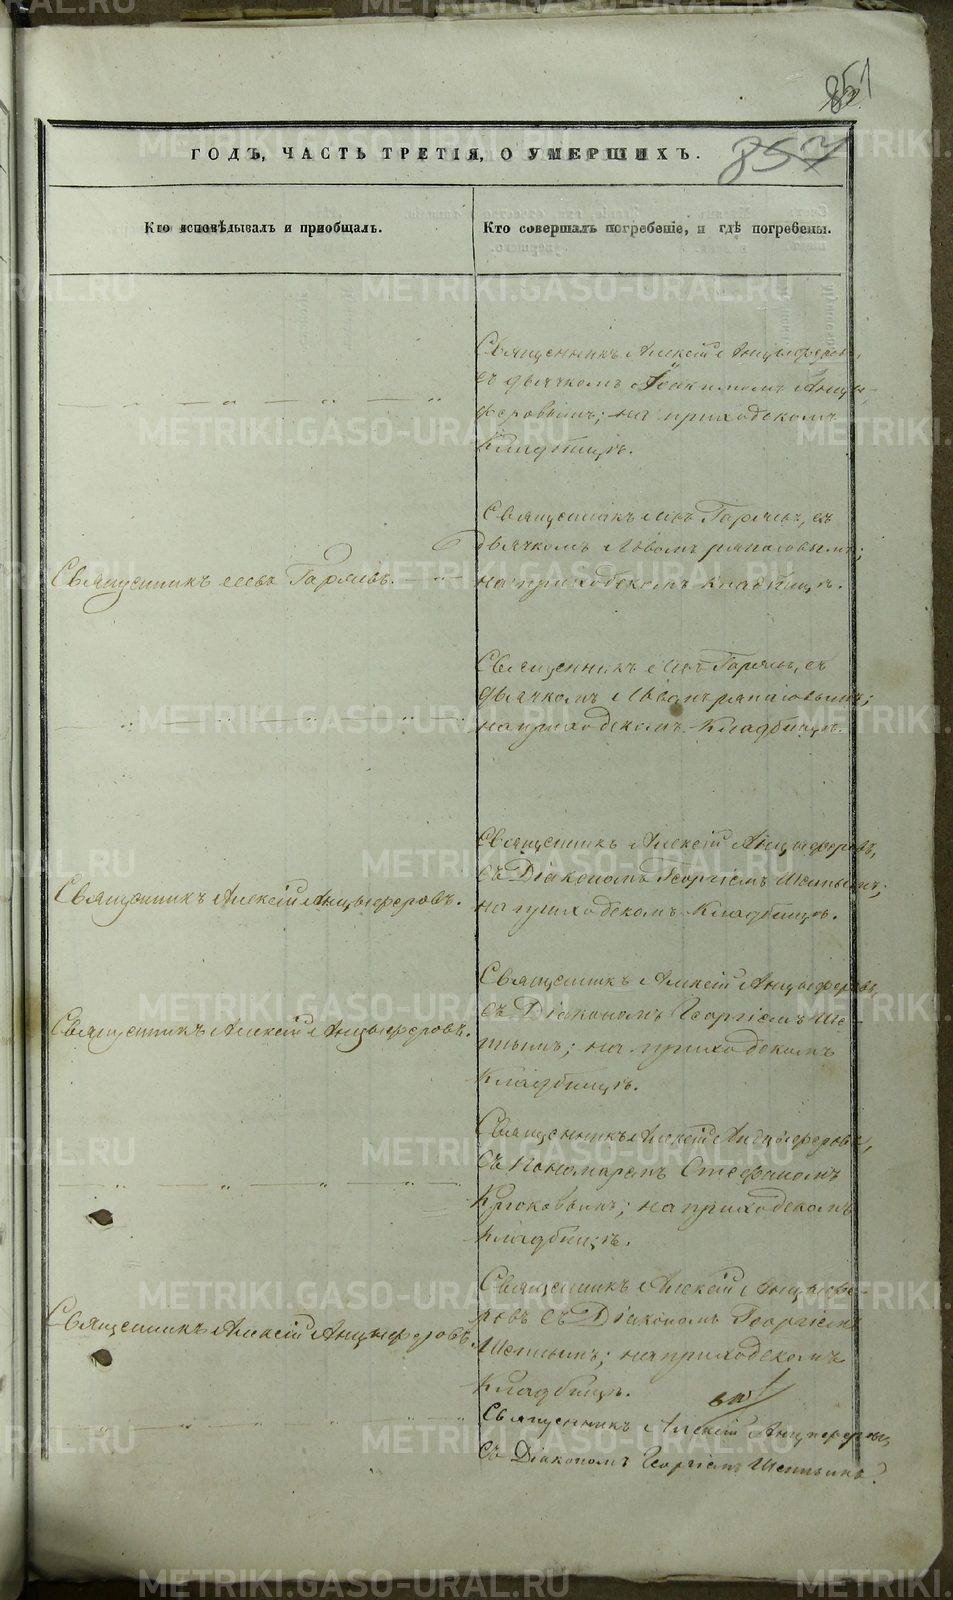 851
857
ГОДЪ, ЧАСТЬ ТРЕТІЯ, О УМЕРШИХЪ.
Кто исповѣдывалъ и пріобщалъ.
Кто совершалъ погребеніе, и гдѣ погребены.
Священникъ Алексій Анцыферовъ,
съ дьячкомъ Іоакимомъ Анцы-
феровымъ; на приходскомъ
Кладбищѣ.
Священникъ Левъ Гаряевъ.
Священникъ Левъ Гаряевъ, съ
дьячкомъ
на приходскомъ кладбищѣ.
Священникъ Левъ Гаряевъ, съ
дьячкомъ
на приходскомъ Кладбищѣ.
Священникъ Алексій Анцыферовъ.
Священникъ Алексій Анцыферовъ,
съ Діакономъ Георгіемъ
на приходскомъ Кладбищѣ.
Священникъ Алексій Анцыферовъ.
Священникъ Алексій Анцыферовъ,
съ Діакономъ Георгіемъ
на приходскомъ
Кладбищѣ.
Священникъ Алексій Анцыферовъ,
съ Пономаремъ Стефаномъ
Крюковымъ; на приходскомъ
Кладбищѣ.
Священникъ Алексій Анцыферовъ.
Священникъ Алексій Анцыфе-
ровъ съ Діакономъ Георгіемъ
на приходскомъ
Кладбищѣ.
Священникъ Алексій Анцыферовъ,
съ Діакономъ Георгіемъ
METRIKI.GASO-URAL.RU